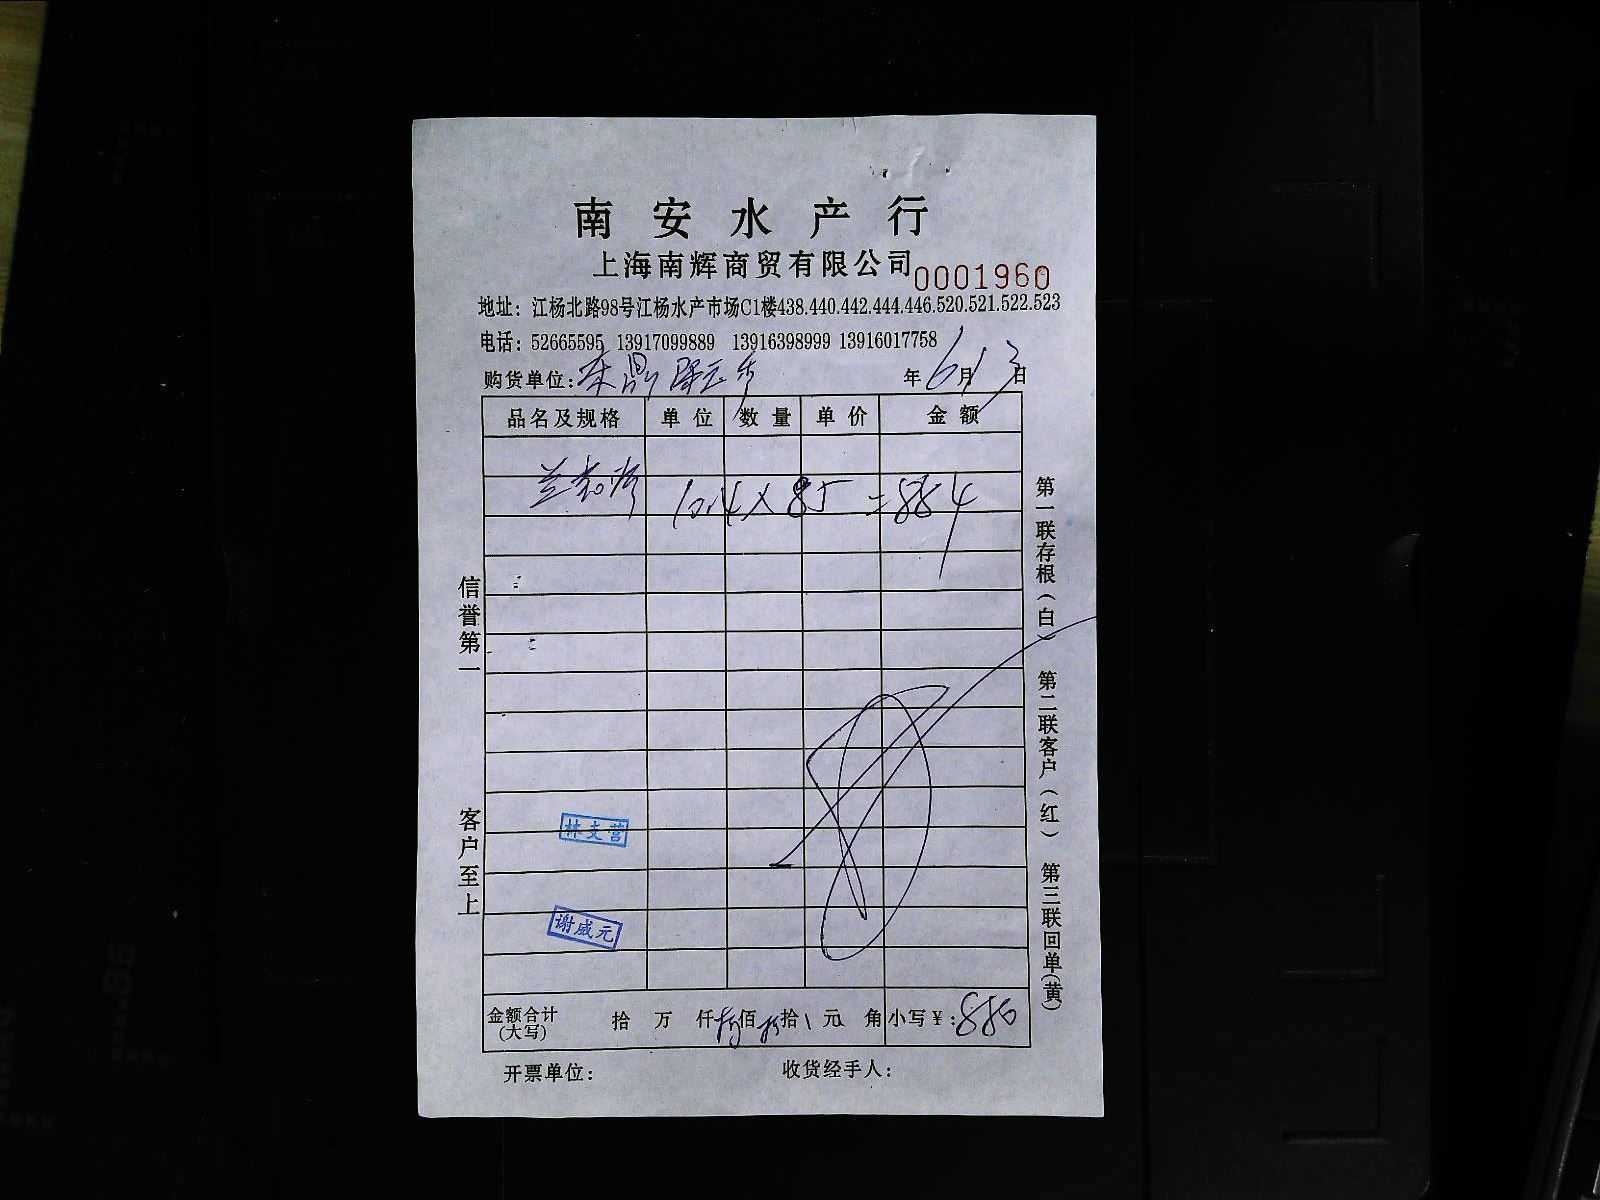 南安水产行
上海南辉商贸有限公司 0001960
地址：江杨北路98号江杨水产市场C1楼438.440.442.444.446.520.521.522.523
电话：52665595 13917099889 13916398999 13916017758
购货单位： 年6月13日
品名及规格 单位 数量 单价 金额
10.4×85=884
信誉第一
客户至上
第一联存根（白） 第二联客户（红） 第三联回单（黄）
林支营
谢威元
金额合计（大写） 拾 万 仟捌佰捌拾 元 角 小写￥：880
开票单位： 收货经手人：